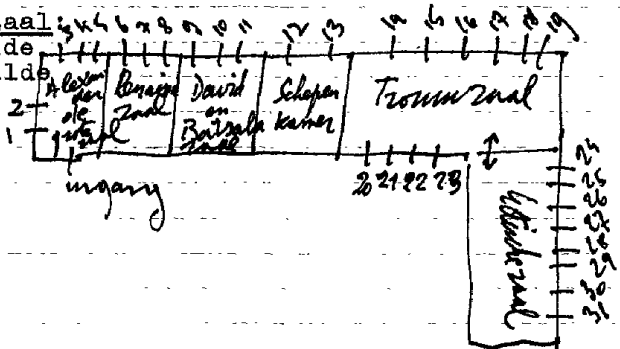 aal:
de
lde
3 4 5 6 7 8 9 10 11 12 13 14 15 16 17 18 19
2
1
Alexan
der
de
grote
zaal
zaal
David
en
Batseba
zaal
Schepen
kamer
Trouwzaal
ingang
20 21 22 23
24
25
26
27
28
29
30
31